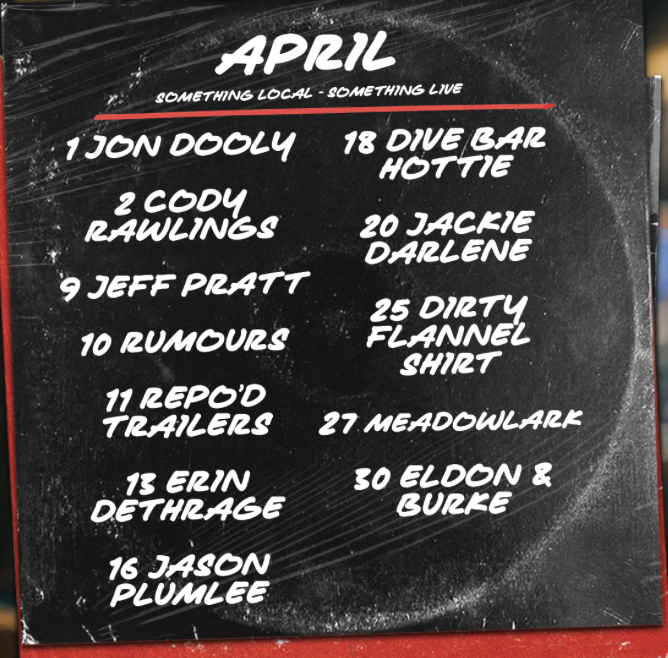 APRIL
SOMETHING LOCAL - SOMETHING LIVE
1 JON DOOLY
2 CODY
RAWLINGS
9 JEFF PRATT
10 RUMOURS
11 REPO'D
TRAILERS
13 ERIN
DETHRAGE
16 JASON
PLUMLEE
18 DIVE BAR
HOTTIE
20 JACKIE
DARLENE
25 DIRTY
FLANNEL
SHIRT
27 MEADOWLARK
30 ELDON &
BURKE